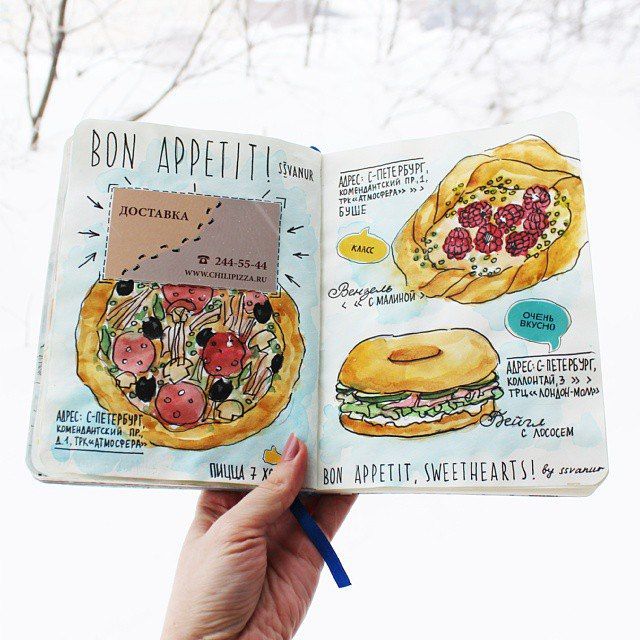 BON APPETIT!
SSVANUR
ДОСТАВКА
☎ 244-55-44
WWW.CHILIPIZZA.RU
АДРЕС: С-ПЕТЕРБУРГ,
КОМЕНДАНТСКИЙ ПР.,
Д.1, ТРК«АТМОСФЕРА»
ПИЦЦА 7
АДРЕС: С-ПЕТЕРБУРГ,
КОМЕНДАНТСКИЙ ПР.,1,
ТРК«АТМОСФЕРА» » >
БУШЕ
КЛАСС
Вензель
< « С МАЛИНОЙ
ОЧЕНЬ
ВКУСНО
АДРЕС: С-ПЕТЕРБУРГ,
КОЛЛОНТАЙ,3 » >
ТРЦ«ЛОНДОН-МОЛЛ»
Бейгл
С ЛОСОСЕМ
BON APPETIT, SWEETHEARTS! by ssvanur